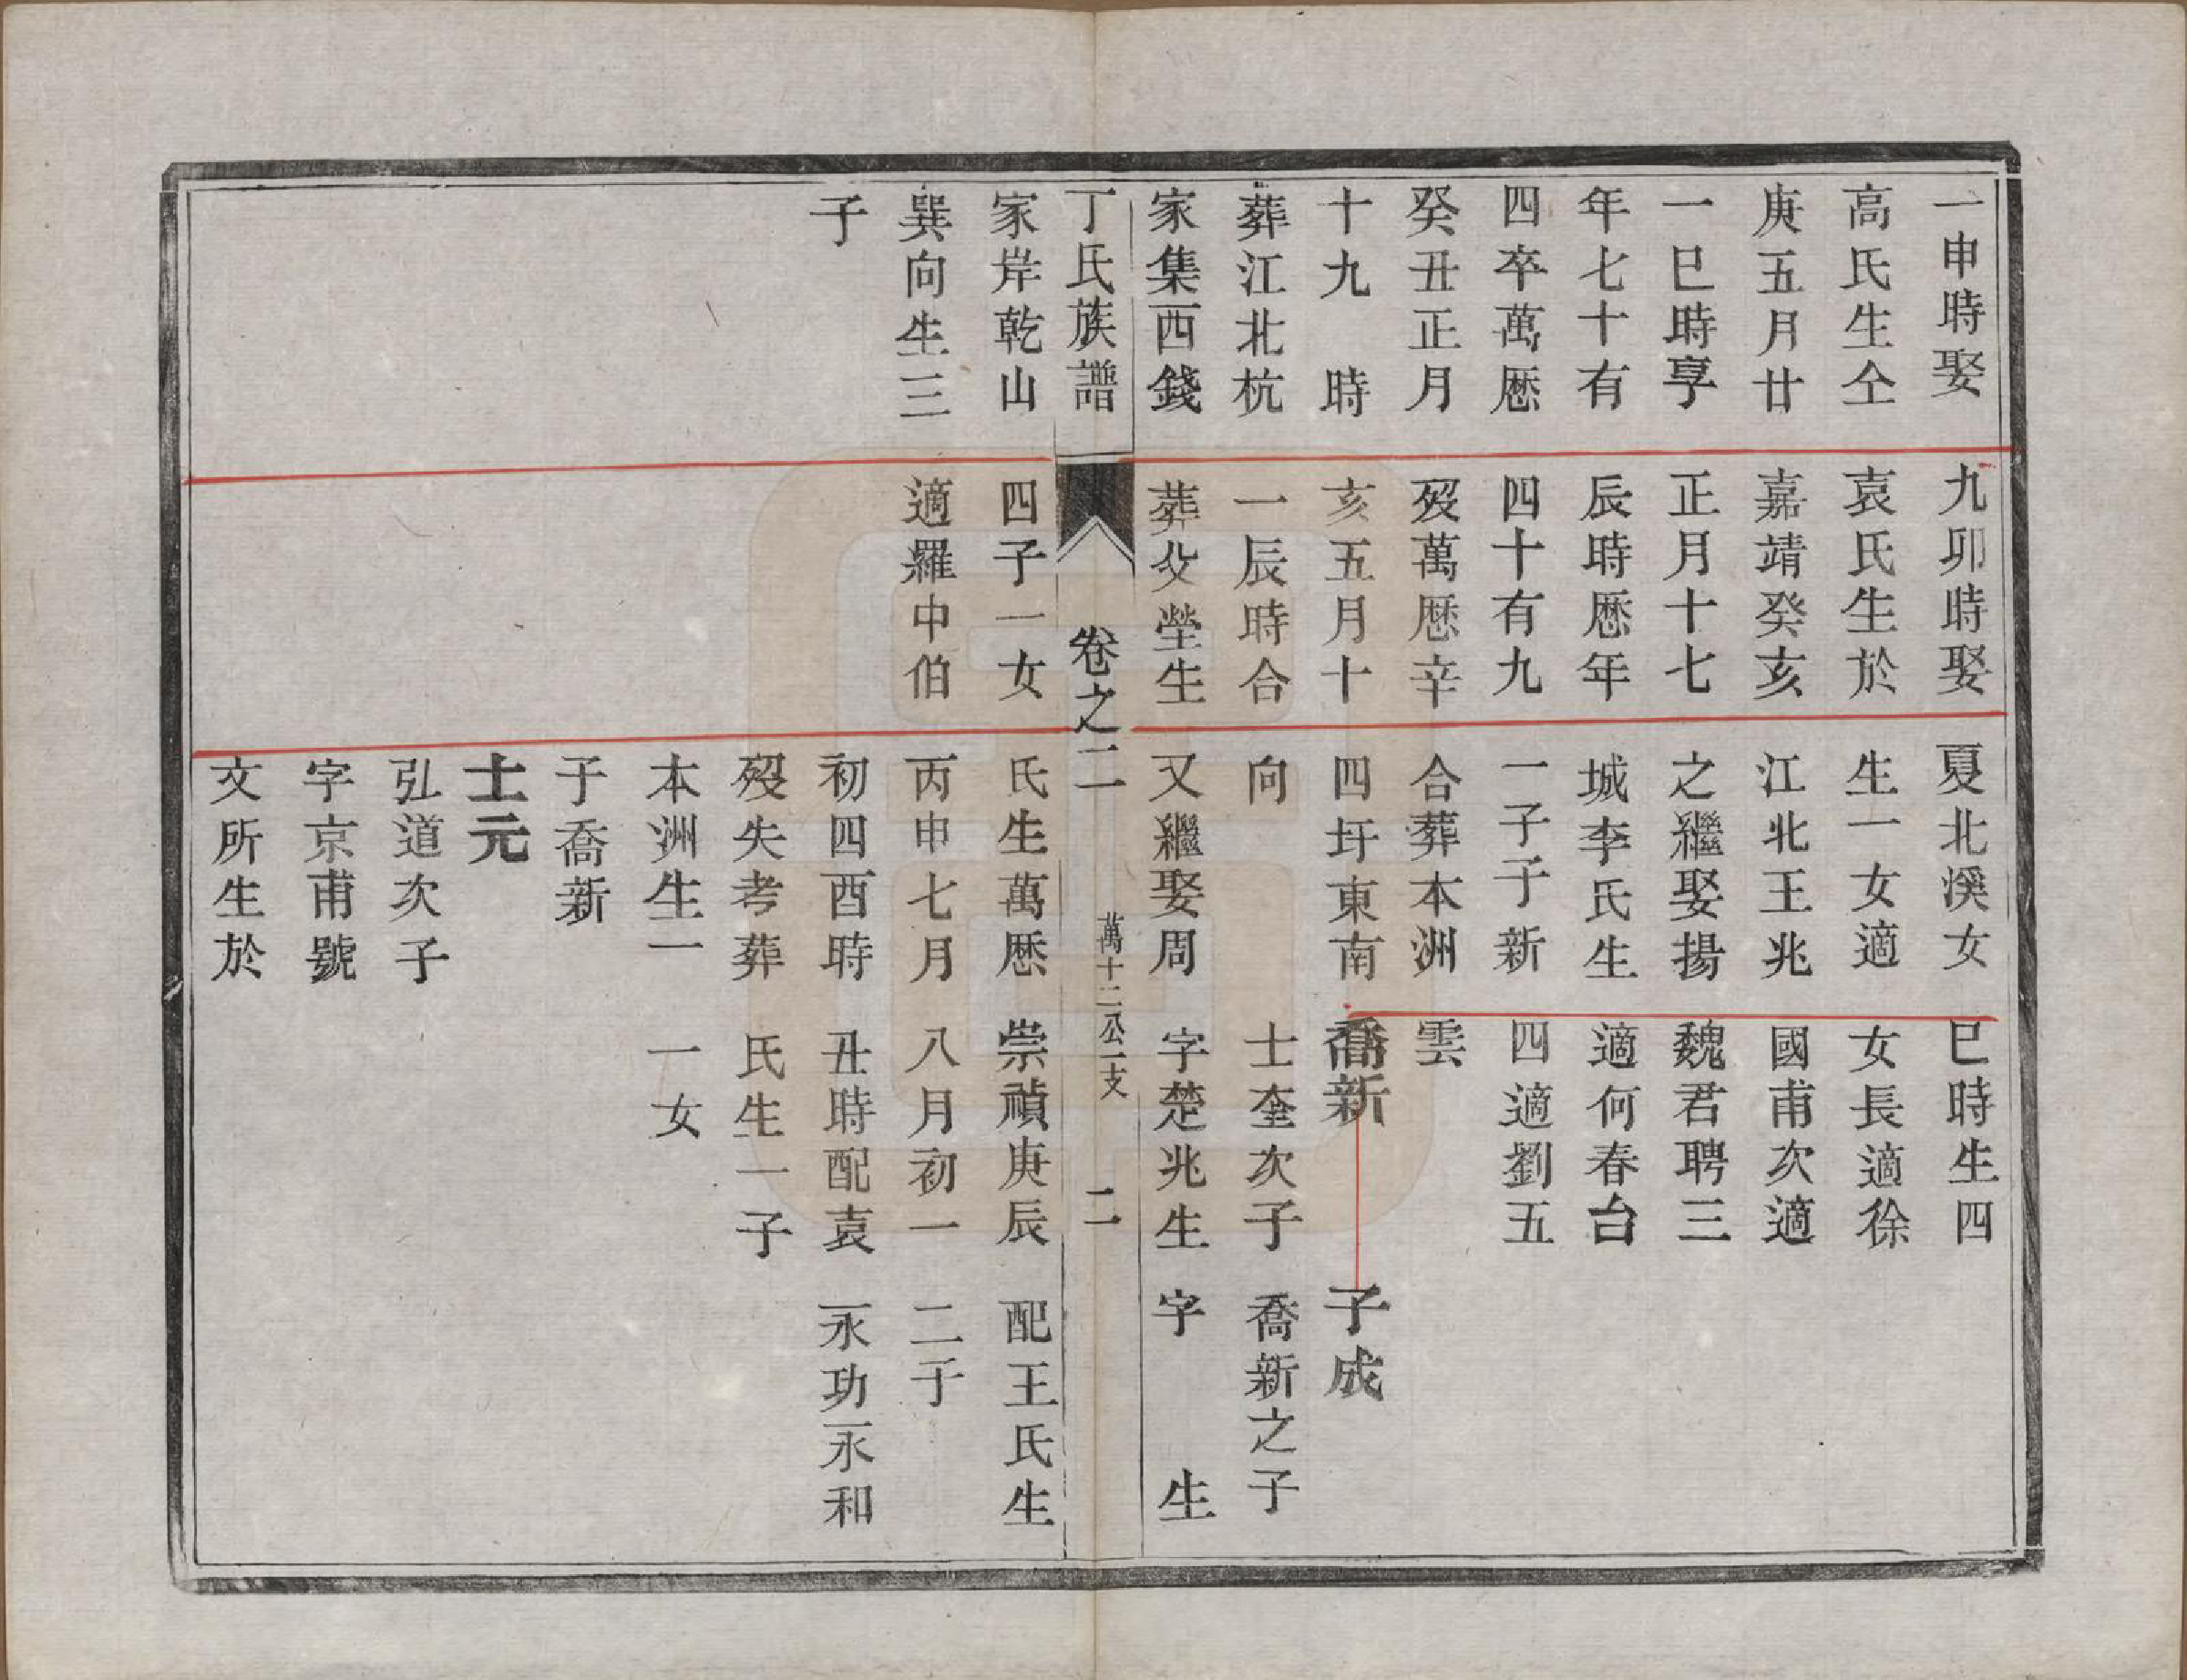 一申時娶
高氏生仝
庚五月廿
一巳時享
年七十有
四卒萬厯
癸丑正月
十九 時
葬江北杭
家集西錢
家岸乾山
巽向生三
子
九卯時娶
袁氏生於
嘉靖癸亥
正月十七
辰時厯年
四十有九
歿萬厯辛
亥五月十
一辰時合
葬父塋生
四子一女
適羅中伯
夏北溪女
生一女適
江北王兆
之繼娶揚
城李氏生
一子子新
合葬本洲
四圩東南
向
又繼娶周
氏生萬厯
丙申七月
初四酉時
歿失考葬
本洲生一
子喬新
士元
弘道次子
字京甫號
文所生於
巳時生四
女長適徐
國甫次適
魏君聘三
適何春台
四適劉五
雲
喬新
士奎次子
字楚兆生
崇禎庚辰
八月初一
丑時配袁
氏生一子
一女
子成
喬新之子
字 生
配王氏生
二子
永功永和
丁氏族譜
卷之二
萬十二公一支
二